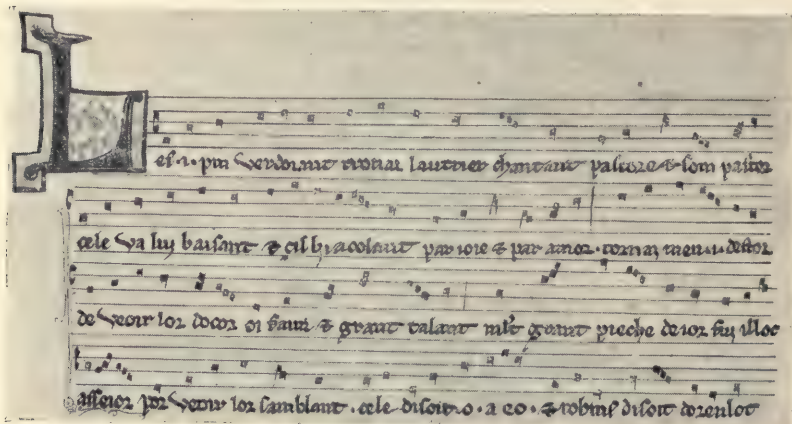 Les .i. pin verdoiant trovai lautrier chantant pastore & son pastor
cele va lui baisant & cil li acolant par ioie & par amor. tornai men .i. destor
de veoir lor docor oi faim & grant talant mlt grant pieche de ior fui illoc
asseior por veoir lor samblant. cele disoit .o. a eo. & robins disoit dorenlot